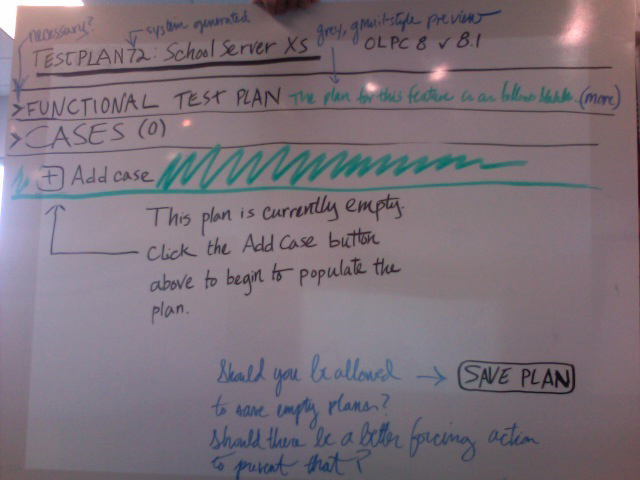 necessary?
system generated
grey, gmail-style preview
TESTPLAN72: SCHOOL SERVER XS
OLPC 8 v B.1
> FUNCTIONAL TEST PLAN The plan for this feature is as follows blahblah. (more)
> CASES (0)
+ Add case
This plan is currently empty.
Click the Add Case button
above to begin to populate the
plan.
Should you be allowed → SAVE PLAN
to save empty plans?
Should there be a better forcing action
to prevent that?